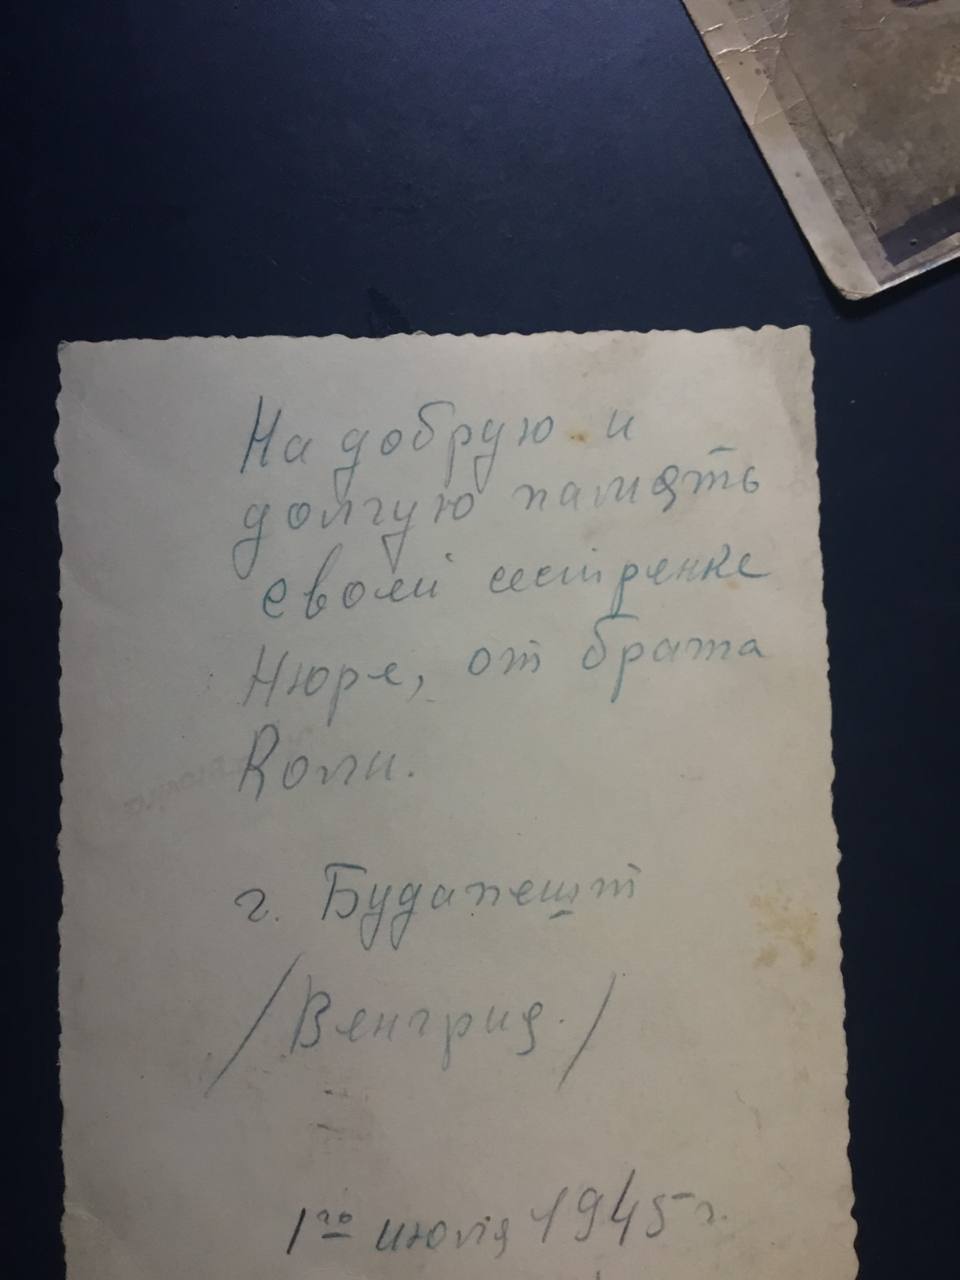 На добрую и
долгую память
своей сестренке
Нюре, от брата
Коли.
г. Будапешт
/Венгрия./
1го июля 1945 г.